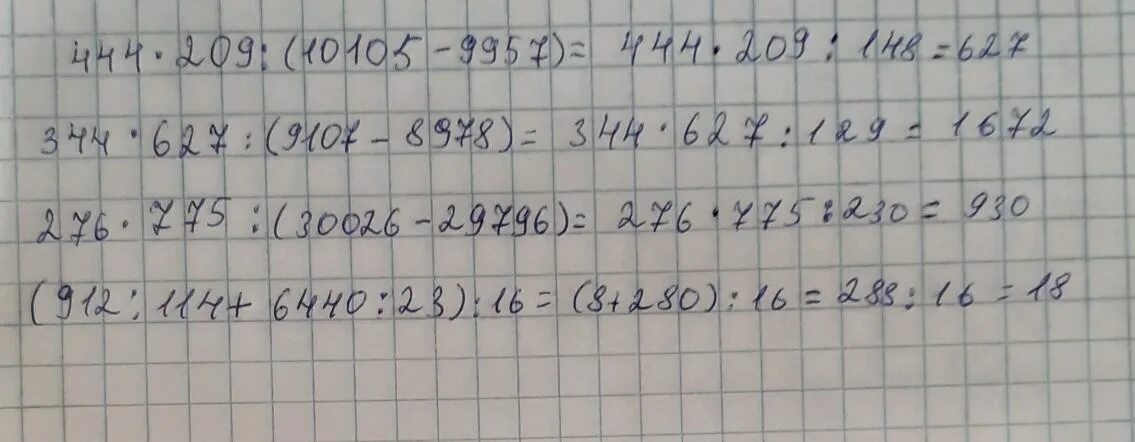 444·209:(10105-9957)= 444·209:148=627
344·627:(9107-8978)= 344·627:129=1672
276·775:(30026-29796)= 276·775:230=930
(912:114+6440:23):16=(8+280):16=288:16=18